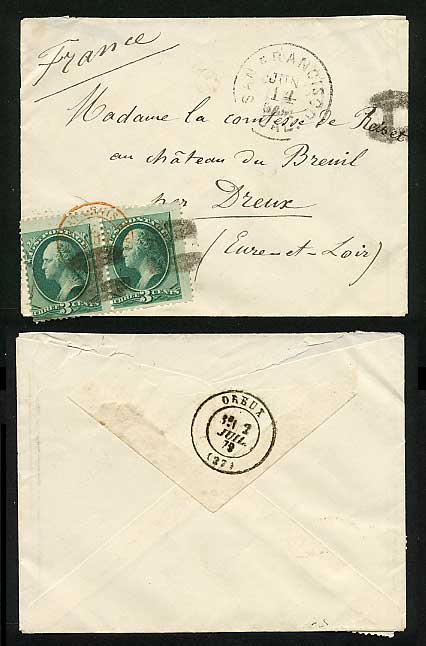 France
SAN FRANCISCO
JUN
14
CAL.
Madame la comtesse de Rabet
au château du Breuil
par Dreux
(Eure-et-Loir)
U.S. POSTAGE
THREE 3 CENTS
U.S. POSTAGE
THREE 3 CENTS
DREUX
2
JUIL
79
(27)